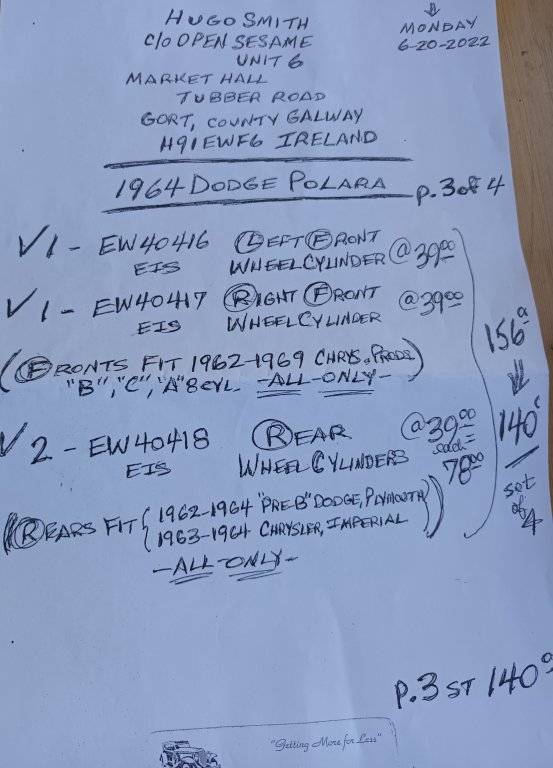 HUGO SMITH
C/O OPEN SESAME
UNIT 6
MARKET HALL
TUBBER ROAD
GORT, COUNTY GALWAY
H91EWF6 IRELAND
MONDAY
6-20-2022
1964 DODGE POLARA
P. 3 of 4
√ 1 - EW40416 LEFT FRONT @ 39.00
EIS WHEEL CYLINDER
√ 1 - EW40417 RIGHT FRONT @ 39.00
EIS WHEEL CYLINDER
(FRONTS FIT 1962-1969 CHRYS. PRODS)
"B", "C", "A" 8CYL. -ALL-ONLY-
√ 2 - EW40418 REAR @ 39.00
EIS WHEEL CYLINDERS each =
78.00
(REARS FIT {1962-1964 "PRE-B" DODGE, PLYMOUTH})
{1963-1964 CHRYSLER, IMPERIAL
-ALL-ONLY-
156
140
set
of
4
P. 3 ST 140
"Getting More for Less"